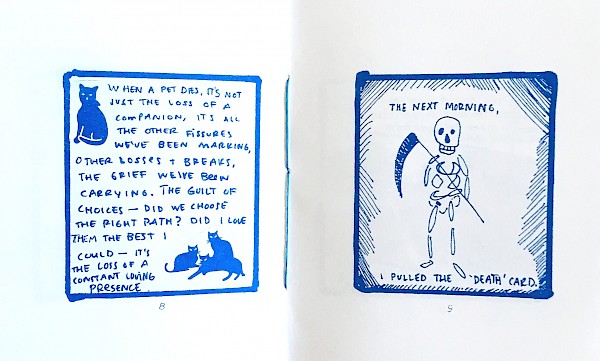 WHEN A PET DIES, IT'S NOT
JUST THE LOSS OF A
COMPANION, IT'S ALL
THE OTHER FISSURES
WE'VE BEEN MARKING,
OTHER LOSSES + BREAKS,
THE GRIEF WE'VE BEEN
CARRYING. THE GUILT OF
CHOICES — DID WE CHOOSE
THE RIGHT PATH? DID I LOVE
THEM THE BEST I
COULD — IT'S
THE LOSS OF A
CONSTANT LOVING
PRESENCE
8
THE NEXT MORNING,
I PULLED THE 'DEATH' CARD.
9